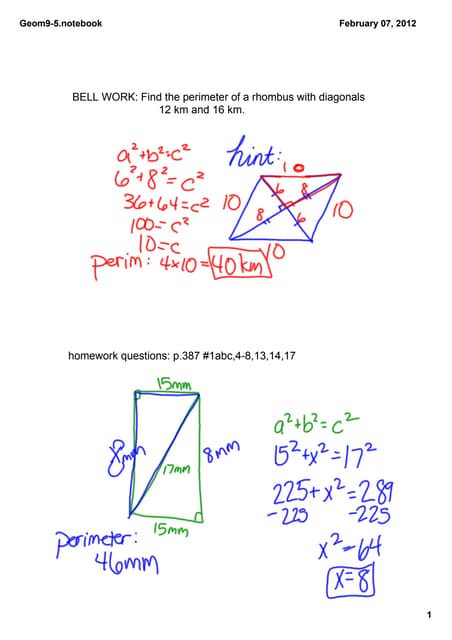 Geom9-5.notebook
February 07, 2012
BELL WORK: Find the perimeter of a rhombus with diagonals
12 km and 16 km.
a²+b²=c²
6²+8²=c²
36+64=c²
100=c²
10=c
perim: 4x10=40km
hint:
10
6
8
10
10
8
6
10
homework questions: p.387 #1abc,4-8,13,14,17
15mm
8mm
8mm
17mm
15mm
perimeter:
46mm
a²+b²=c²
15²+x²=17²
225+x²=289
-225 -225
x²=64
x=8
1